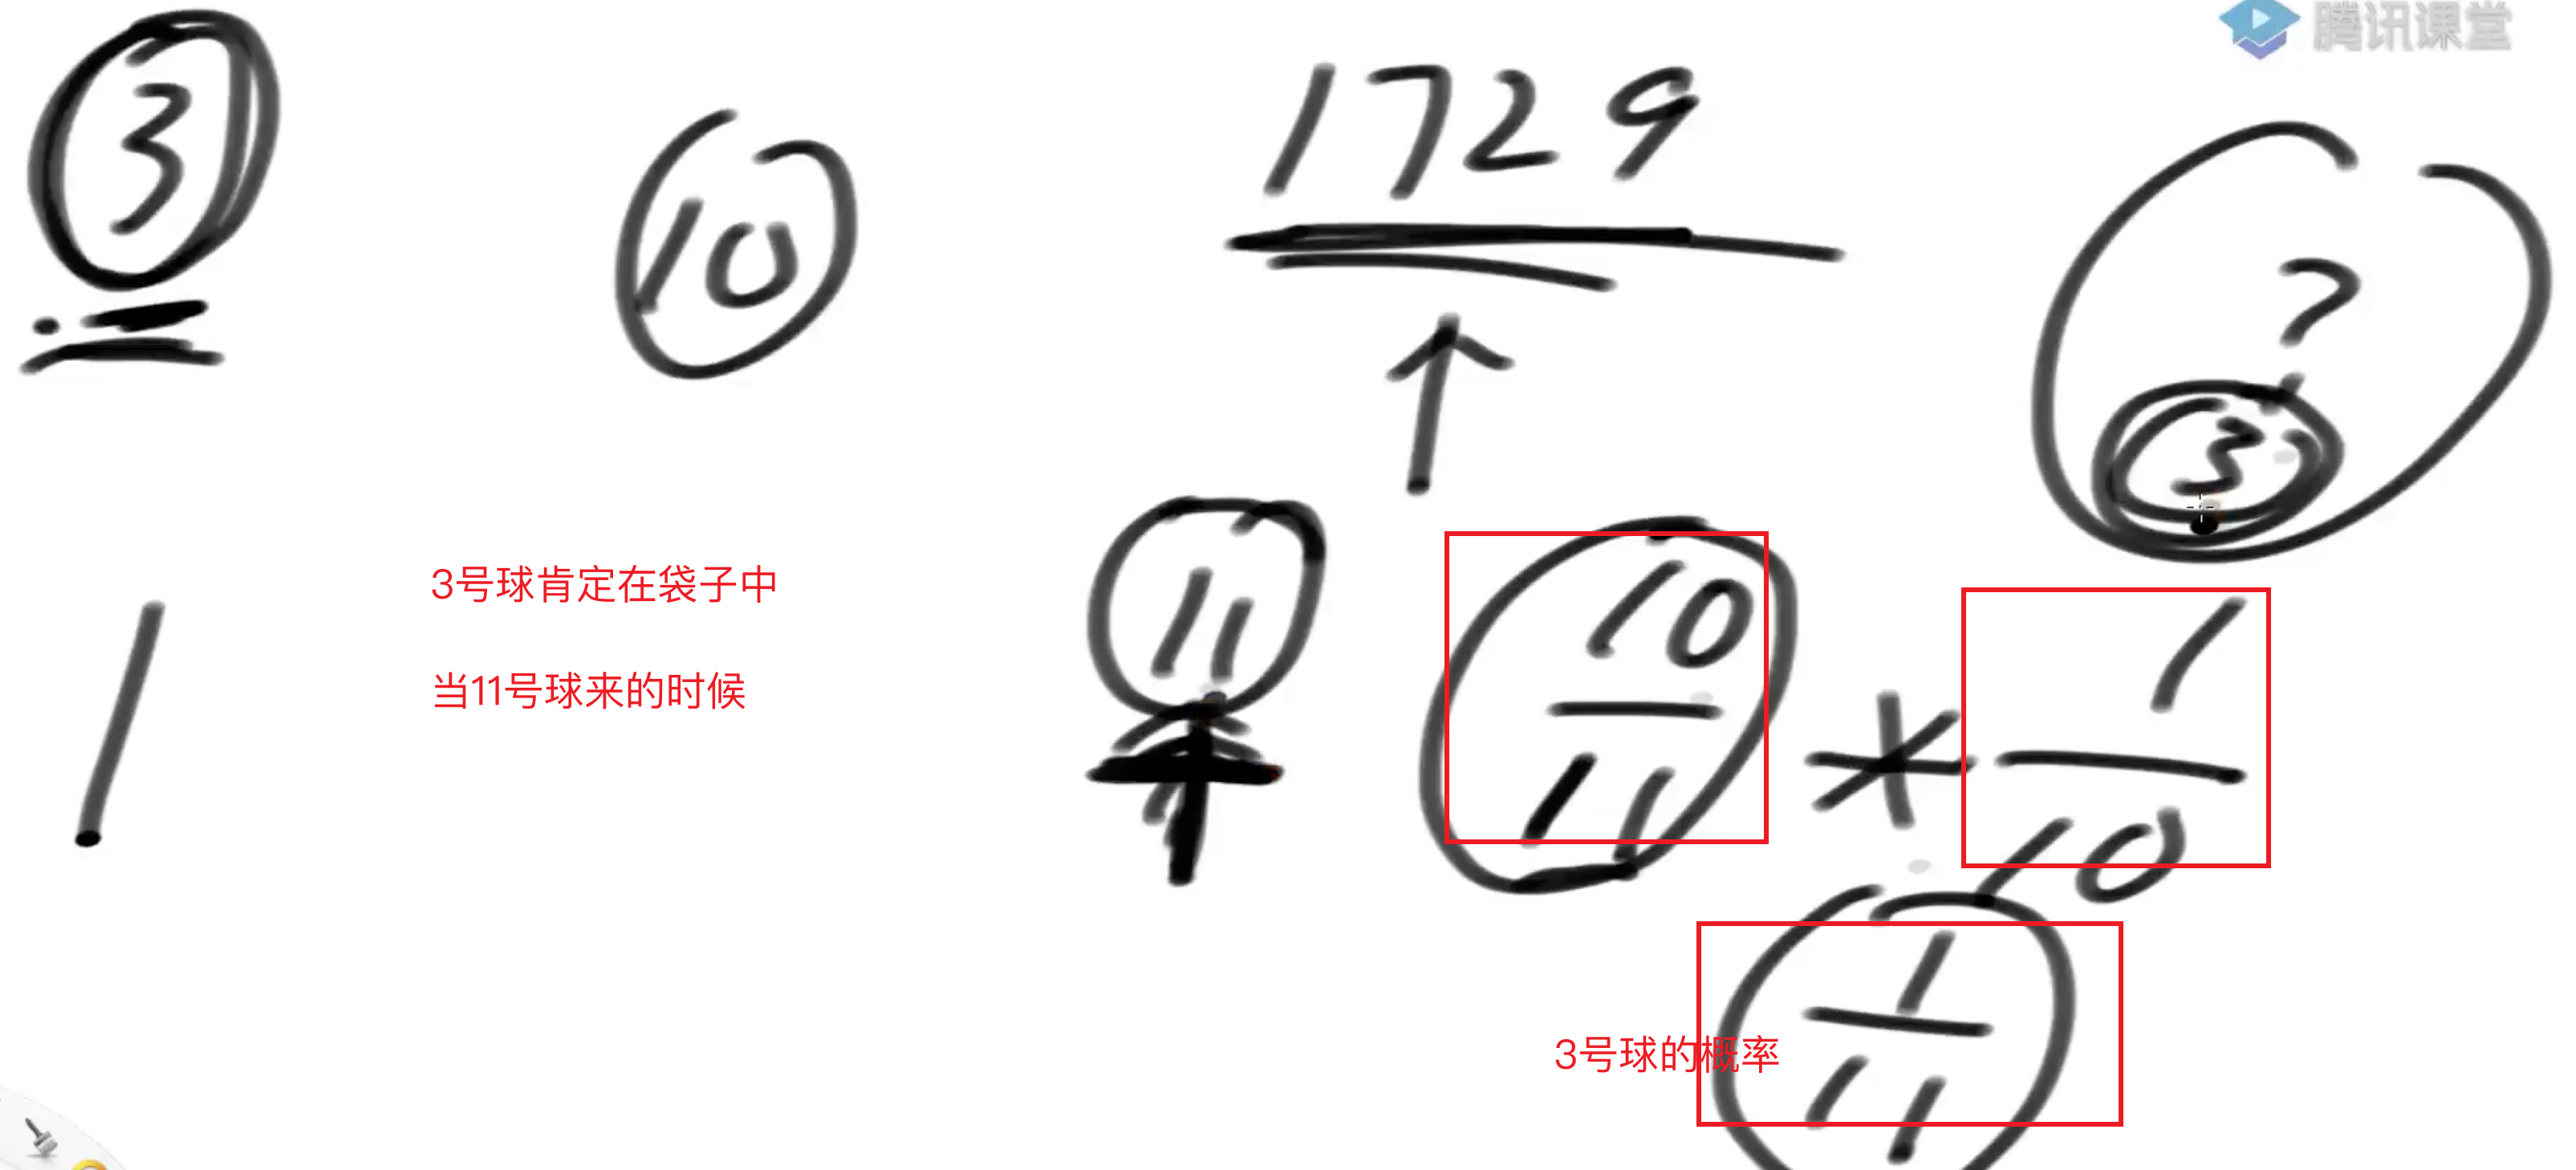 腾讯课堂
3
10
1729
?
3
3号球肯定在袋子中
当11号球来的时候
1
11
10
11
*
1
10
1
11
3号球的概率